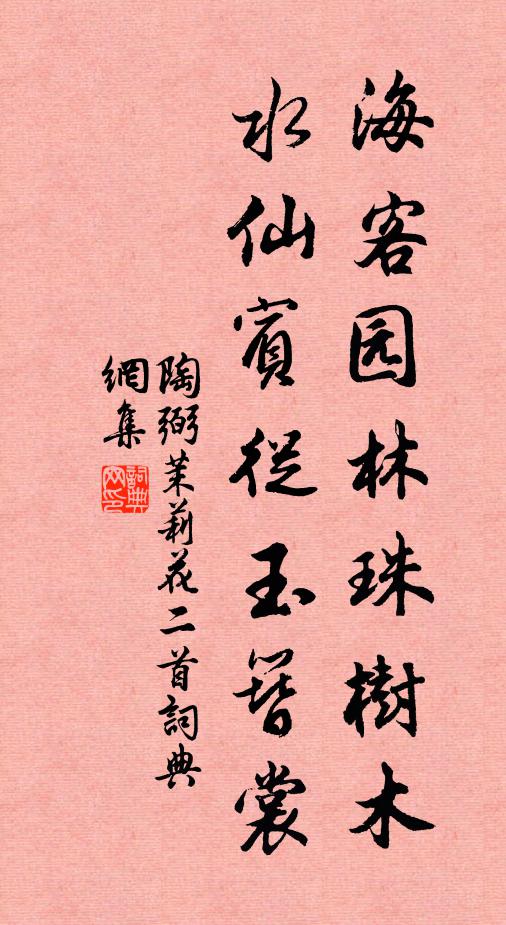 海客园林珠樹木
水仙賓從玉簪裳
陶弼茉莉花二首詞典
網集
詞典
网印